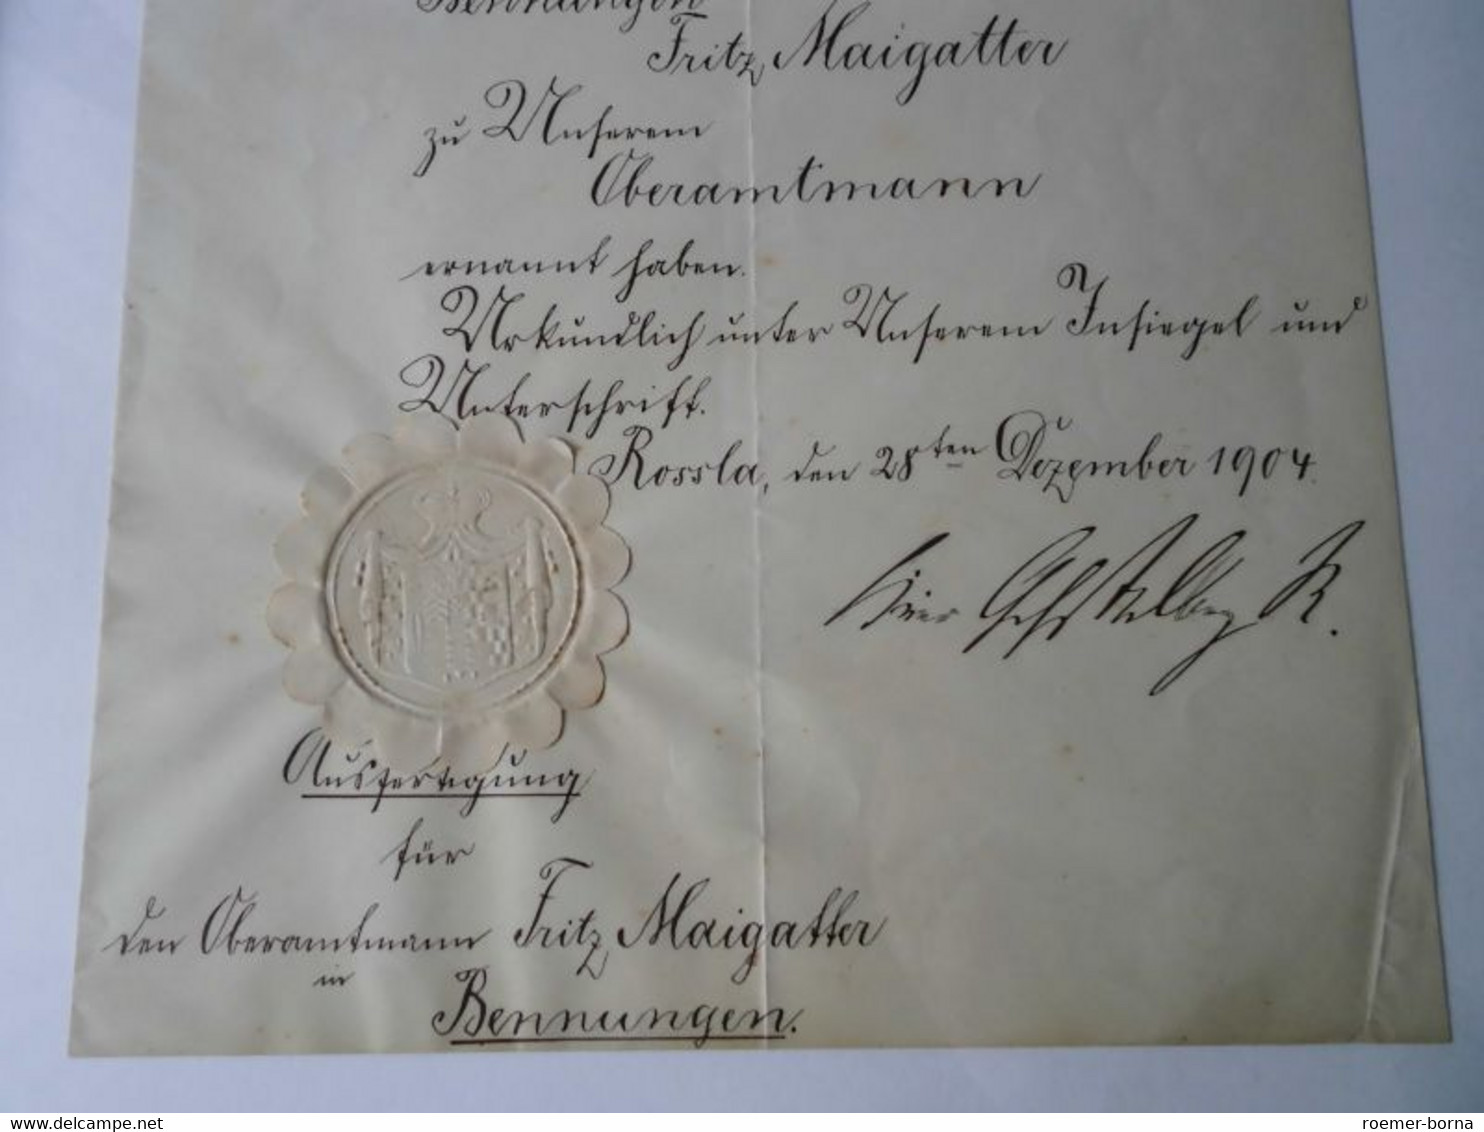 Bennungen
Fritz Maigatter
zu Unserem
Oberamtmann
ernannt haben.
Urkundlich unter Unserem Insiegel und
Unterschrift.
Rossla, den 28ten Dezember 1904.
Stolberg R.
Ausfertigung
für
den Oberamtmann Fritz Maigatter
in
Bennungen.
roemer-borna